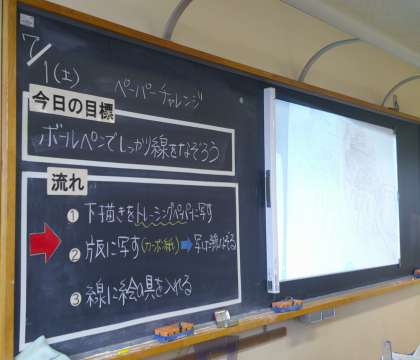 7/1(土)
ペーパーチャレンジ
今日の目標
ボールペンでしっかり線をなぞろう
流れ
① 下描きをトレーシングペーパーに写す
② 版に写す(カーボン紙)➡写した線をなぞる
③ 線に絵の具を入れる